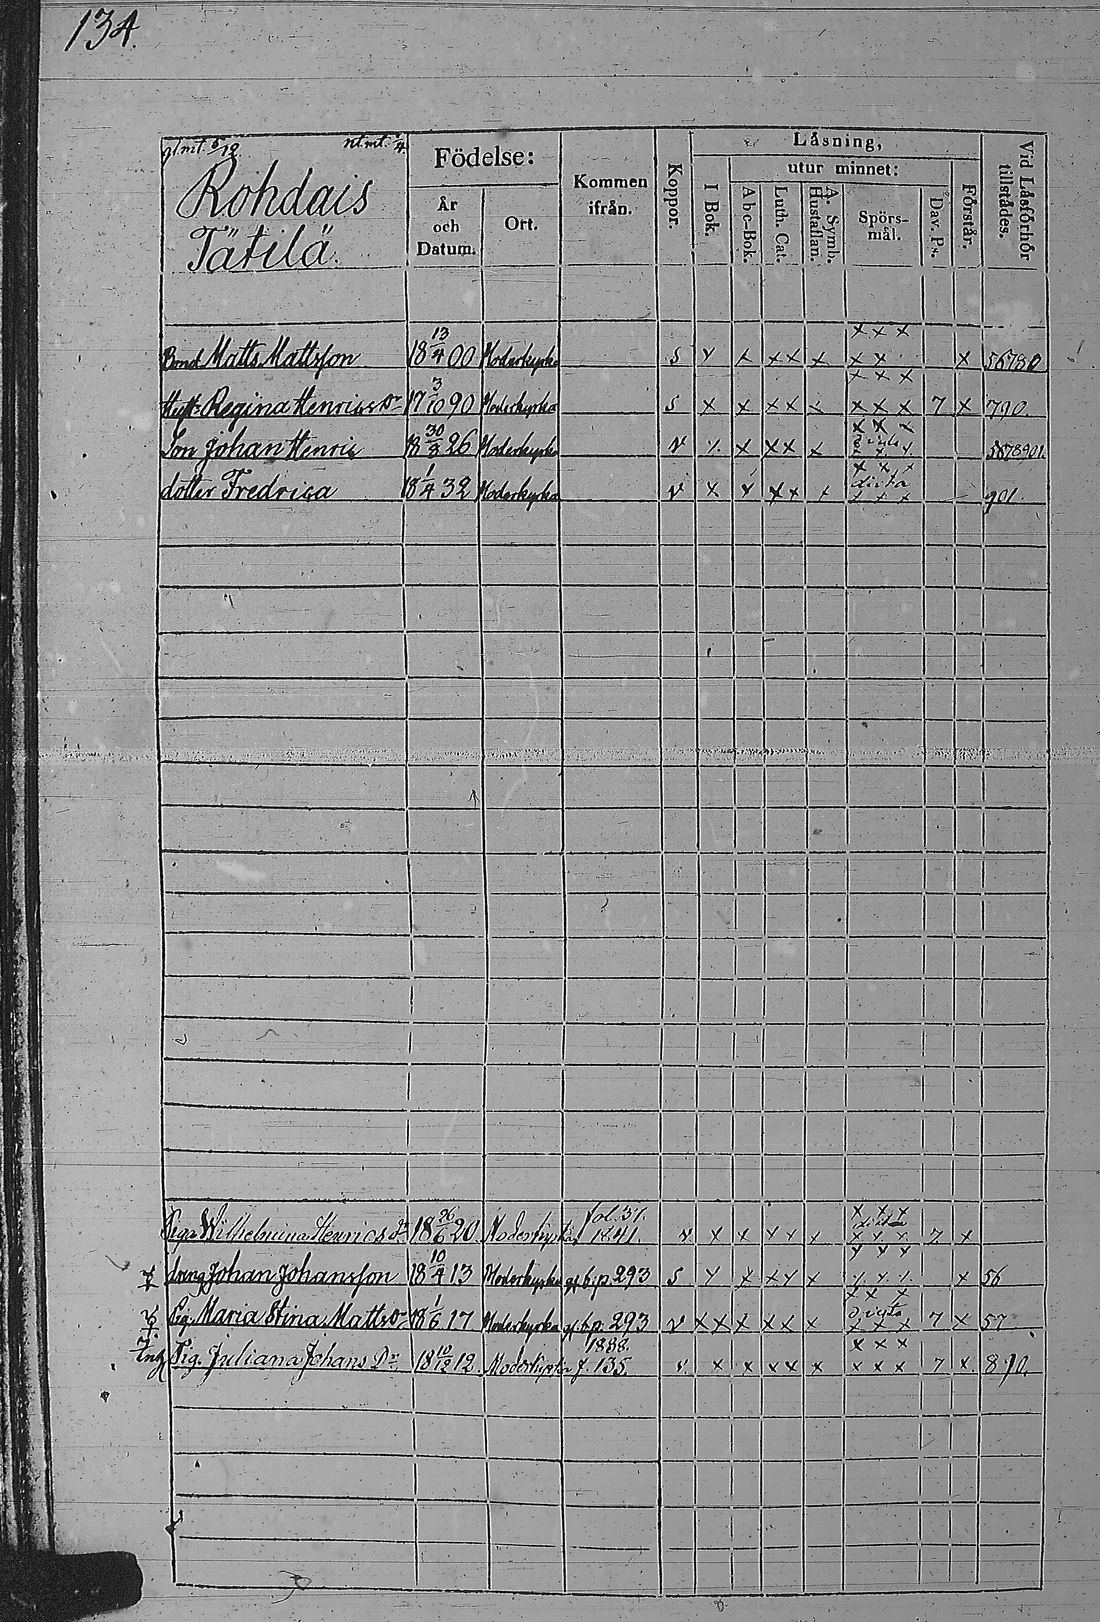 134.
glmt. 5/12 ntmt. 1/4
Rohdais
Tätilä.
Födelse:
År och Datum.
Ort.
Kommen ifrån.
Koppor.
Läsning,
I Bok.
utur minnet:
Abc-Bok.
Luth. Cat.
A. Symb. Hustaflan.
Spörsmål.
Dav. Ps.
Förstår.
Vid Läsförhör tillstädes.
x x x
Bond Matts Mattsson 18 13/4 00 Moderkyrka S x x x x x x x x 56780
x x x
Hust: Regina Henricsdr 17 3/10 90 Moderkyrka S x x x x x x x x 7 x 790.
x x x
Son Johan Henric 18 30/3 26 Moderkyrka v x x x x x dicta x x x 5878901
x x x
dotter Fredrica 18 1/4 32 Moderkyrka v x x x x x dicta x x x 901.
x x x
Piga Wilhelmina Henricsdr 18 26/6 20 Moderkyrka fol. 37. 1841. v x x x x x dicta x x x 7 x
x x x
dräng Johan Johansson 18 10/4 13 Moderkyrka gl. b. p. 293 S x x x x x x x x x 56
x x x
Pig. Maria Stina Mattsdr 18 1/6 17 Moderkyrka gl. b. p. 293 v x x x x x x dicta x x x 7 x 57
x x x
Pig. Juliana Johans Dr 18 10/12 12 Moderkyrka 1838. f. 135. v. x x x x x x x x 7 x 890.